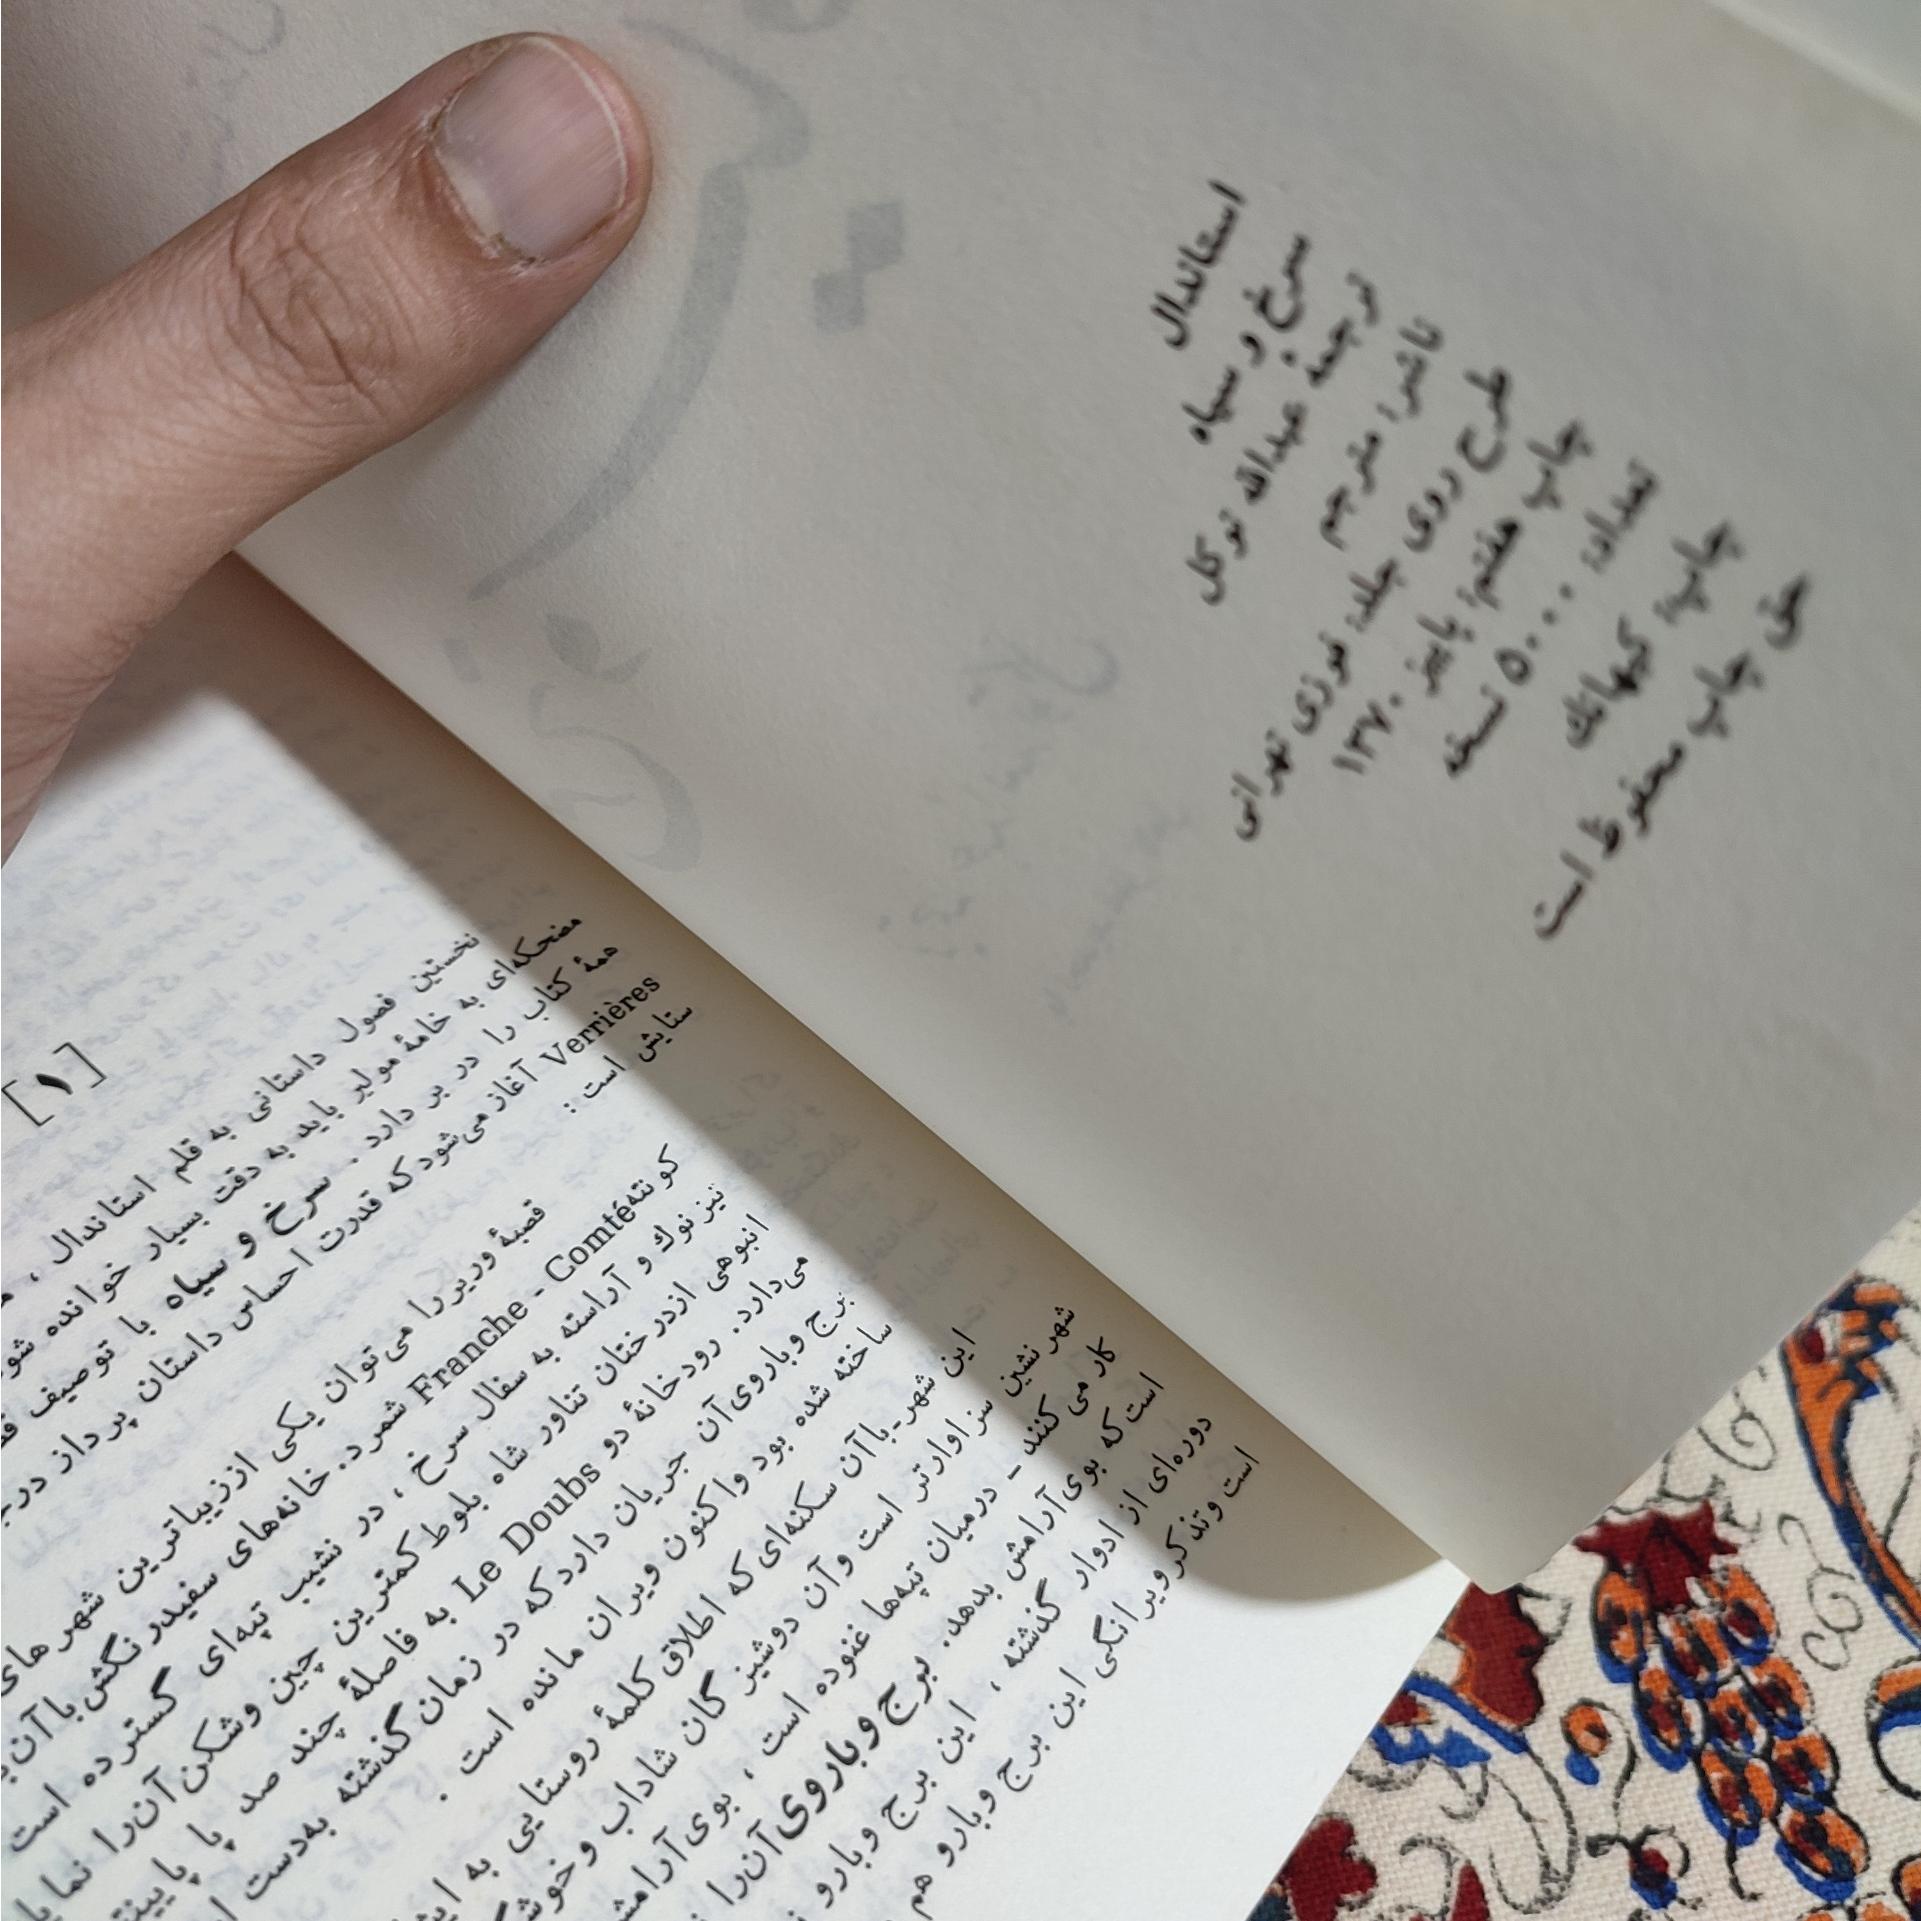 استاندال
سرخ و سیاه
ترجمهٔ عبدالله توکل
ناشر: مترجم
طرح روی جلد: فوزی تهرانی
چاپ هفتم: پاییز ۱۳۷۰
تعداد: ۵۰۰۰ نسخه
چاپ: کیهانك
حق چاپ محفوظ است
[۱]
نخستین فصول داستانی به قلم استاندال ،
مضحکه‌ای به خامهٔ مولیر باید به دقت بسیار خوانده
همهٔ کتاب را در بر دارد . سرخ و سیاه با توصیف
Verrières آغاز می‌شود که قدرت احساس داستان پرداز
ستایش است :
قصبهٔ وریر را می‌توان یکی از زیباترین شهر های
کونته Franche - Comté شمرد. خانه‌های سفیدرنگش با آن
نیز نوك و آراسته به سفال سرخ ، در نشیب تپه‌ای گسترده است
انبوهی ازدرختان تناور شاه بلوط کمترین چین وشکن آن‌را
می‌دارد. رودخانهٔ دو Le Doubs به فاصلهٔ چند صد پا
برج و باروی آن جریان دارد که در زمان گذشته به‌دست
ساخته شده بود واکنون ویران مانده است .
این شهر-باآن سکنه‌ای که اطلاق کلمهٔ روستایی به
شهر نشین سزاوارتر است وآن دوشیزگان شاداب و
کار می کنند - درمیان تپه‌ها غنوده است ، بوی
است که بوی آرامش بدهد. برج و باروی آن‌را
دوره‌ای از ادوار گذشته ، این برج وبارو
است وتذکر ویرانگی این برج وبارو هم